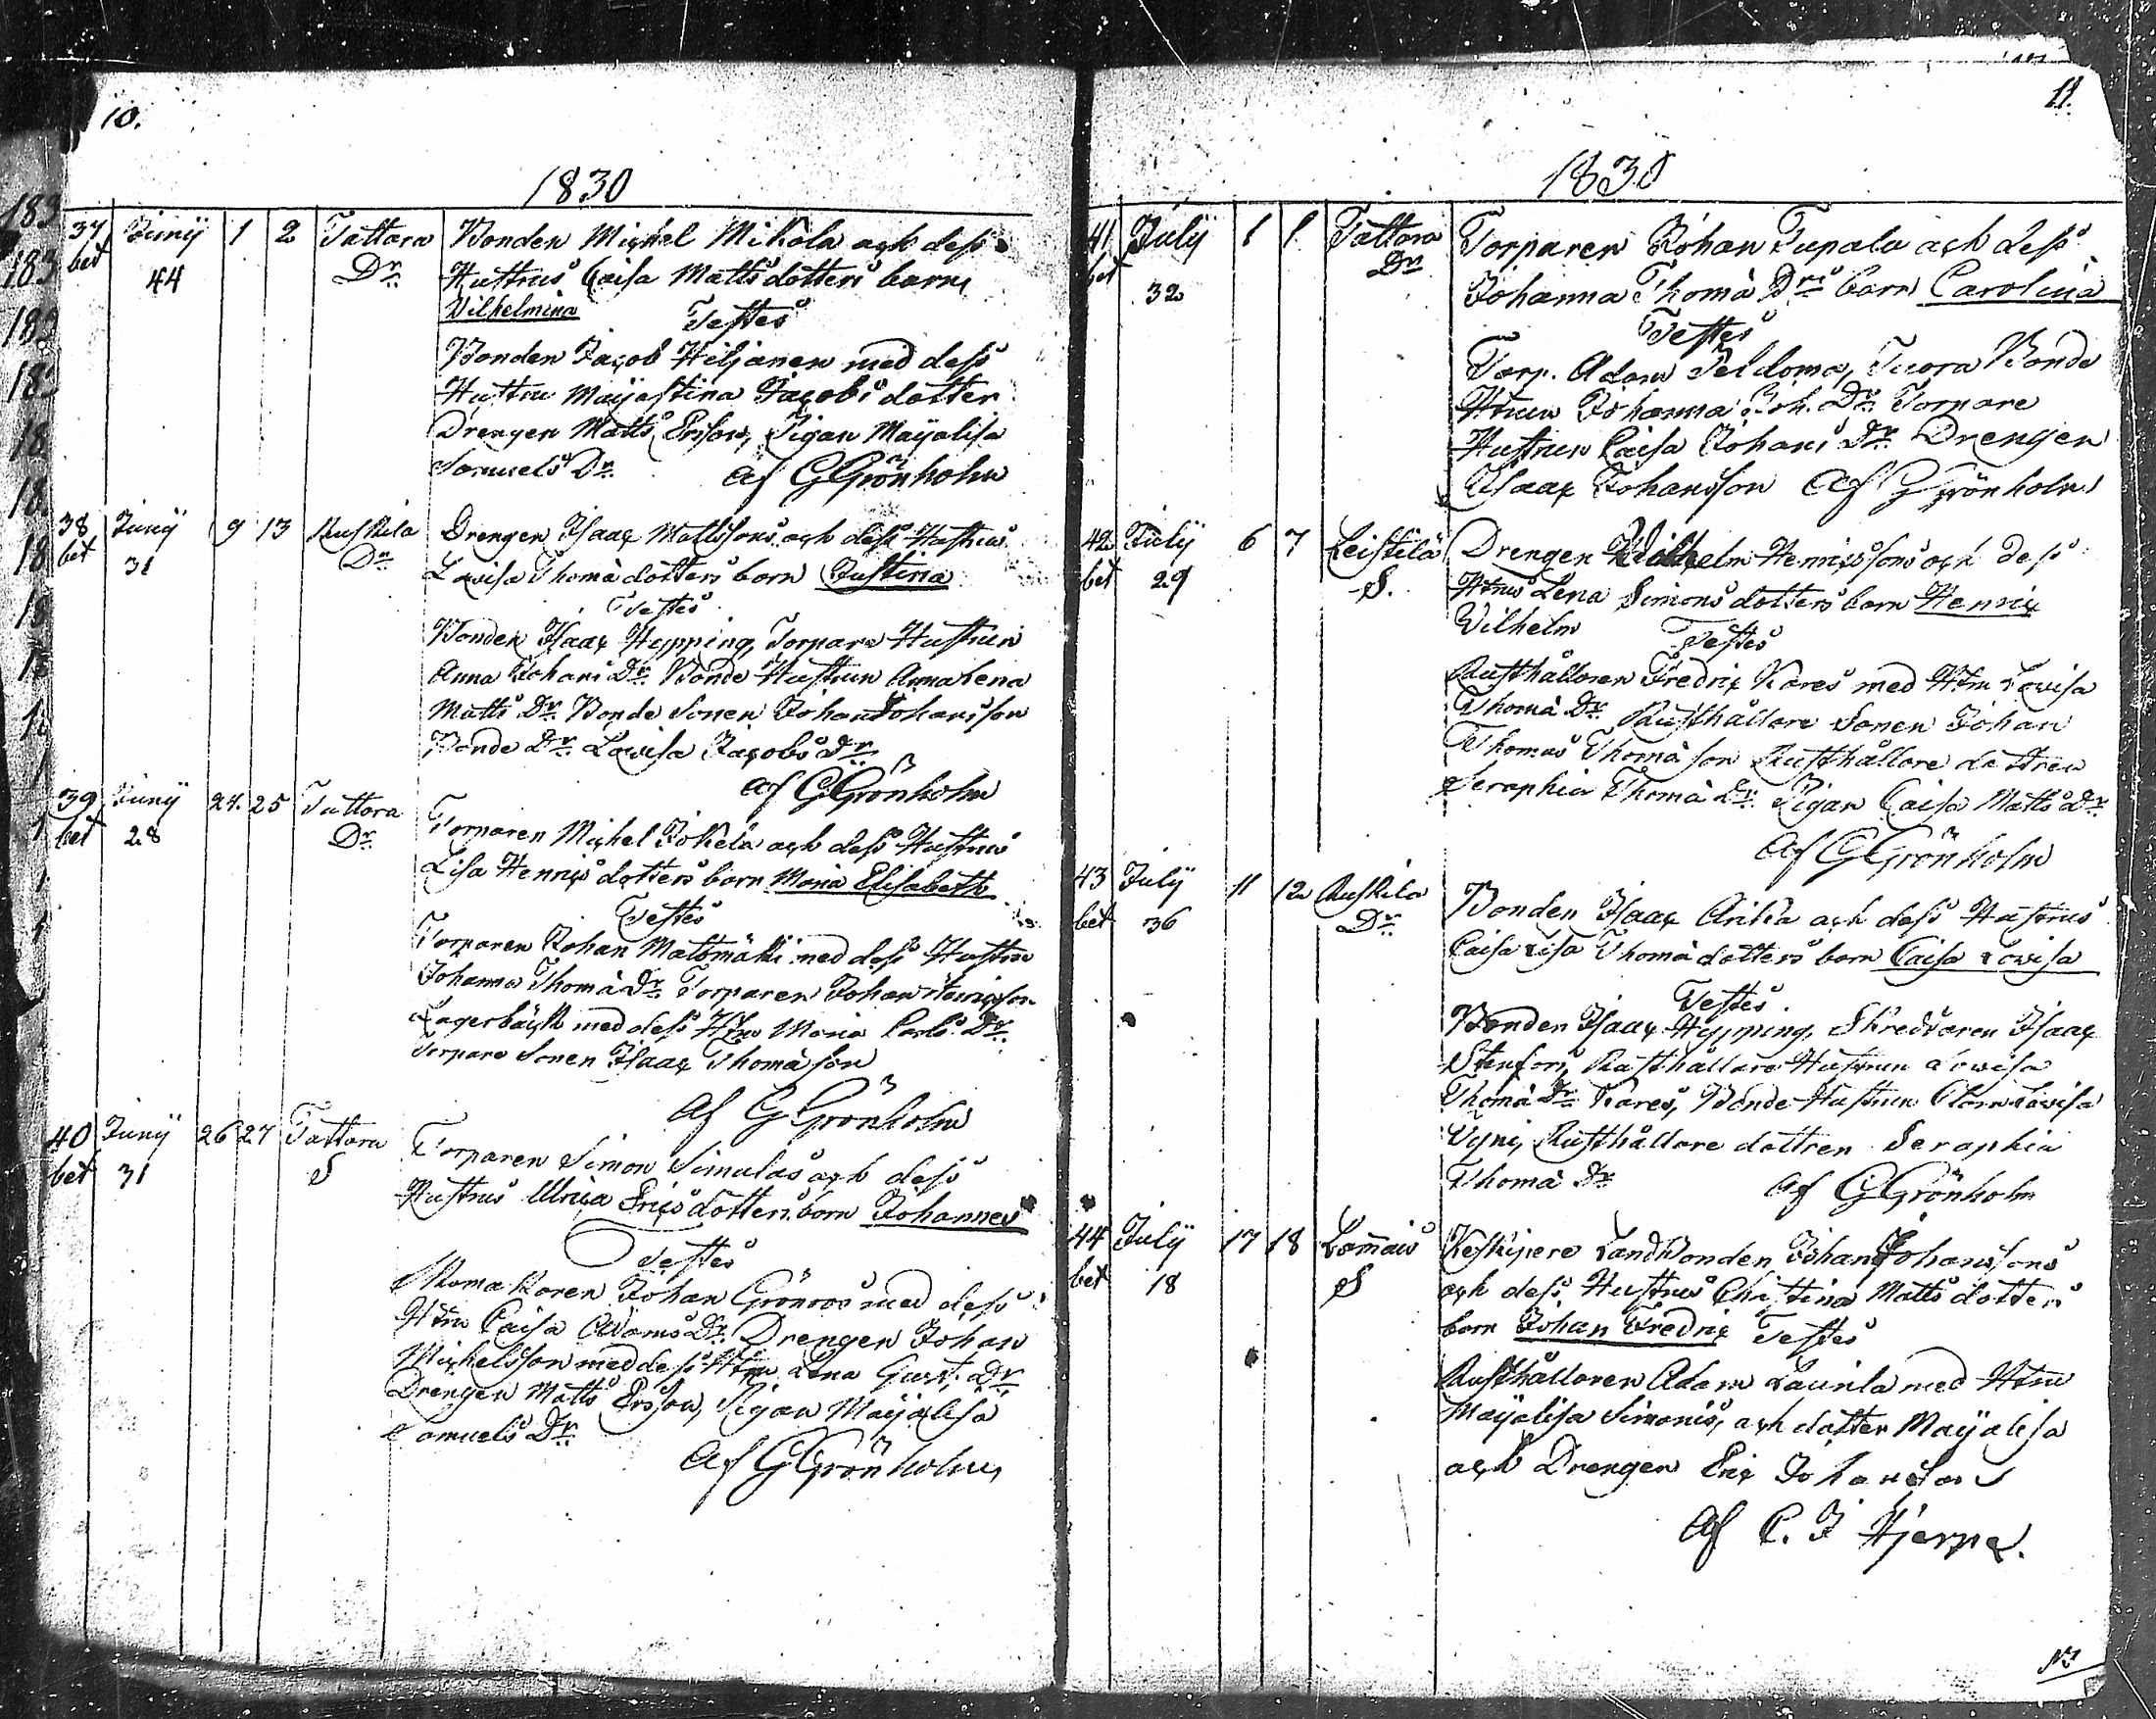 10.
1830
37 Junij 1 2 Tattara Bonden Michel Mikola och dess
bet 44 Dr Hustrus Caisa Mattsdotters barn
Wilhelmina Testes
Bonden Jacob Hiljanen med dess
Hustru Majastina Jacobsdotter
Drengen Matts Ersson, Pigan Majalisa
Samuels Dr. Af G Grönholm
38 Junij 9 13 Ruskila Drengen Isaac Mattssons och dess Hustrus
bet 31 Dr Lovisa Thomædotters barn Justina
Testes
Bonden Isaac Hypping, Torpare Hustrun
Anna Johans Dr Bonde Hustrun Annalena
Matts Dr Bonde Sonen Johan Johansson
Bonde Dr Lovisa Jacobs Dr
Af G Grönholm
39 Junij 24. 25 Tattara Torparen Michel Jokela och dess Hustrus
bet 28 Dr Lisa Henricsdotters barn Maria Elisabeth
Testes
Torparen Johan Mattsmäki med dess Hustru
Johanna Thomæ Dr Torparen Johan Henricsson
Lagerbäck med dess Htru Maria Carls Dr
Torpare Sonen Isaac Thomæson
Af G Grönholm
40 Junij 26 27 Tattara Torparen Simon Simulas och dess
bet 31 S Hustrus Ulrica Ericsdotters barn Johannes
Testes
Skomakaren Johan Grönroos med dess
Htru Caisa Adams Dr Drengen Johan
Michelsson med dess Htru Lena Gust. Dr
Drengen Matts Ersson, Pigan Majalisa
Samuels Dr
Af G Grönholm
11.
1830
41 Julij 1 1 Tattara Torparen Johan Tupala och dess
bet 32 Dr Johanna Thomæ Drs barn Carolina
Testes
Torp. Adam Peldoma, Tuora Bonde
Htrun Johanna Joh. Dr Torpare
Hustrun Caisa Johans Dr Drengen
Isaac Johansson Af G Grönholm
42 Julij 6 7 Leistilä Drengen Wilhelm Henricssons och dess
bet 29 S. Htrus Lena Simonsdotters barn Henric
Wilhelm Testes
Rusthållaren Fredric Kares med Htru Lovisa
Thomæ Dr Rusthållare Sonen Johan
Thomas Thomæson Rusthållare dottren
Seraphia Thomæ Dr. Pigan Caisa Matts Dr
Af G Grönholm
43 Julij 11 12 Ruskila Bonden Isaac Arikka och dess Hustrus
bet 36 Dr Caisa Lisa Thomædotters barn Caisa Lovisa
Testes
Bonden Isaac Hypping, Skreddaren Isaac
Stenfors, Rusthållare Hustrun Lovisa
Thomæ Dr Kares, Bonde Hustrun Clara Lovisa
Rusthållare dottren Seraphia
Thomæ Dr Af G Grönholm
44 Julij 17 18 Lammais Landbonden Johan Johanssons
bet 18 S och dess Hustrus Christina Mattsdotters
barn Johan Fredric Testes
Rusthållaren Adam Laurila med Htru
Majalisa Simons, och dotter Majalisa
och Drengen Eric Johansson
Af C. J Hjerpe.